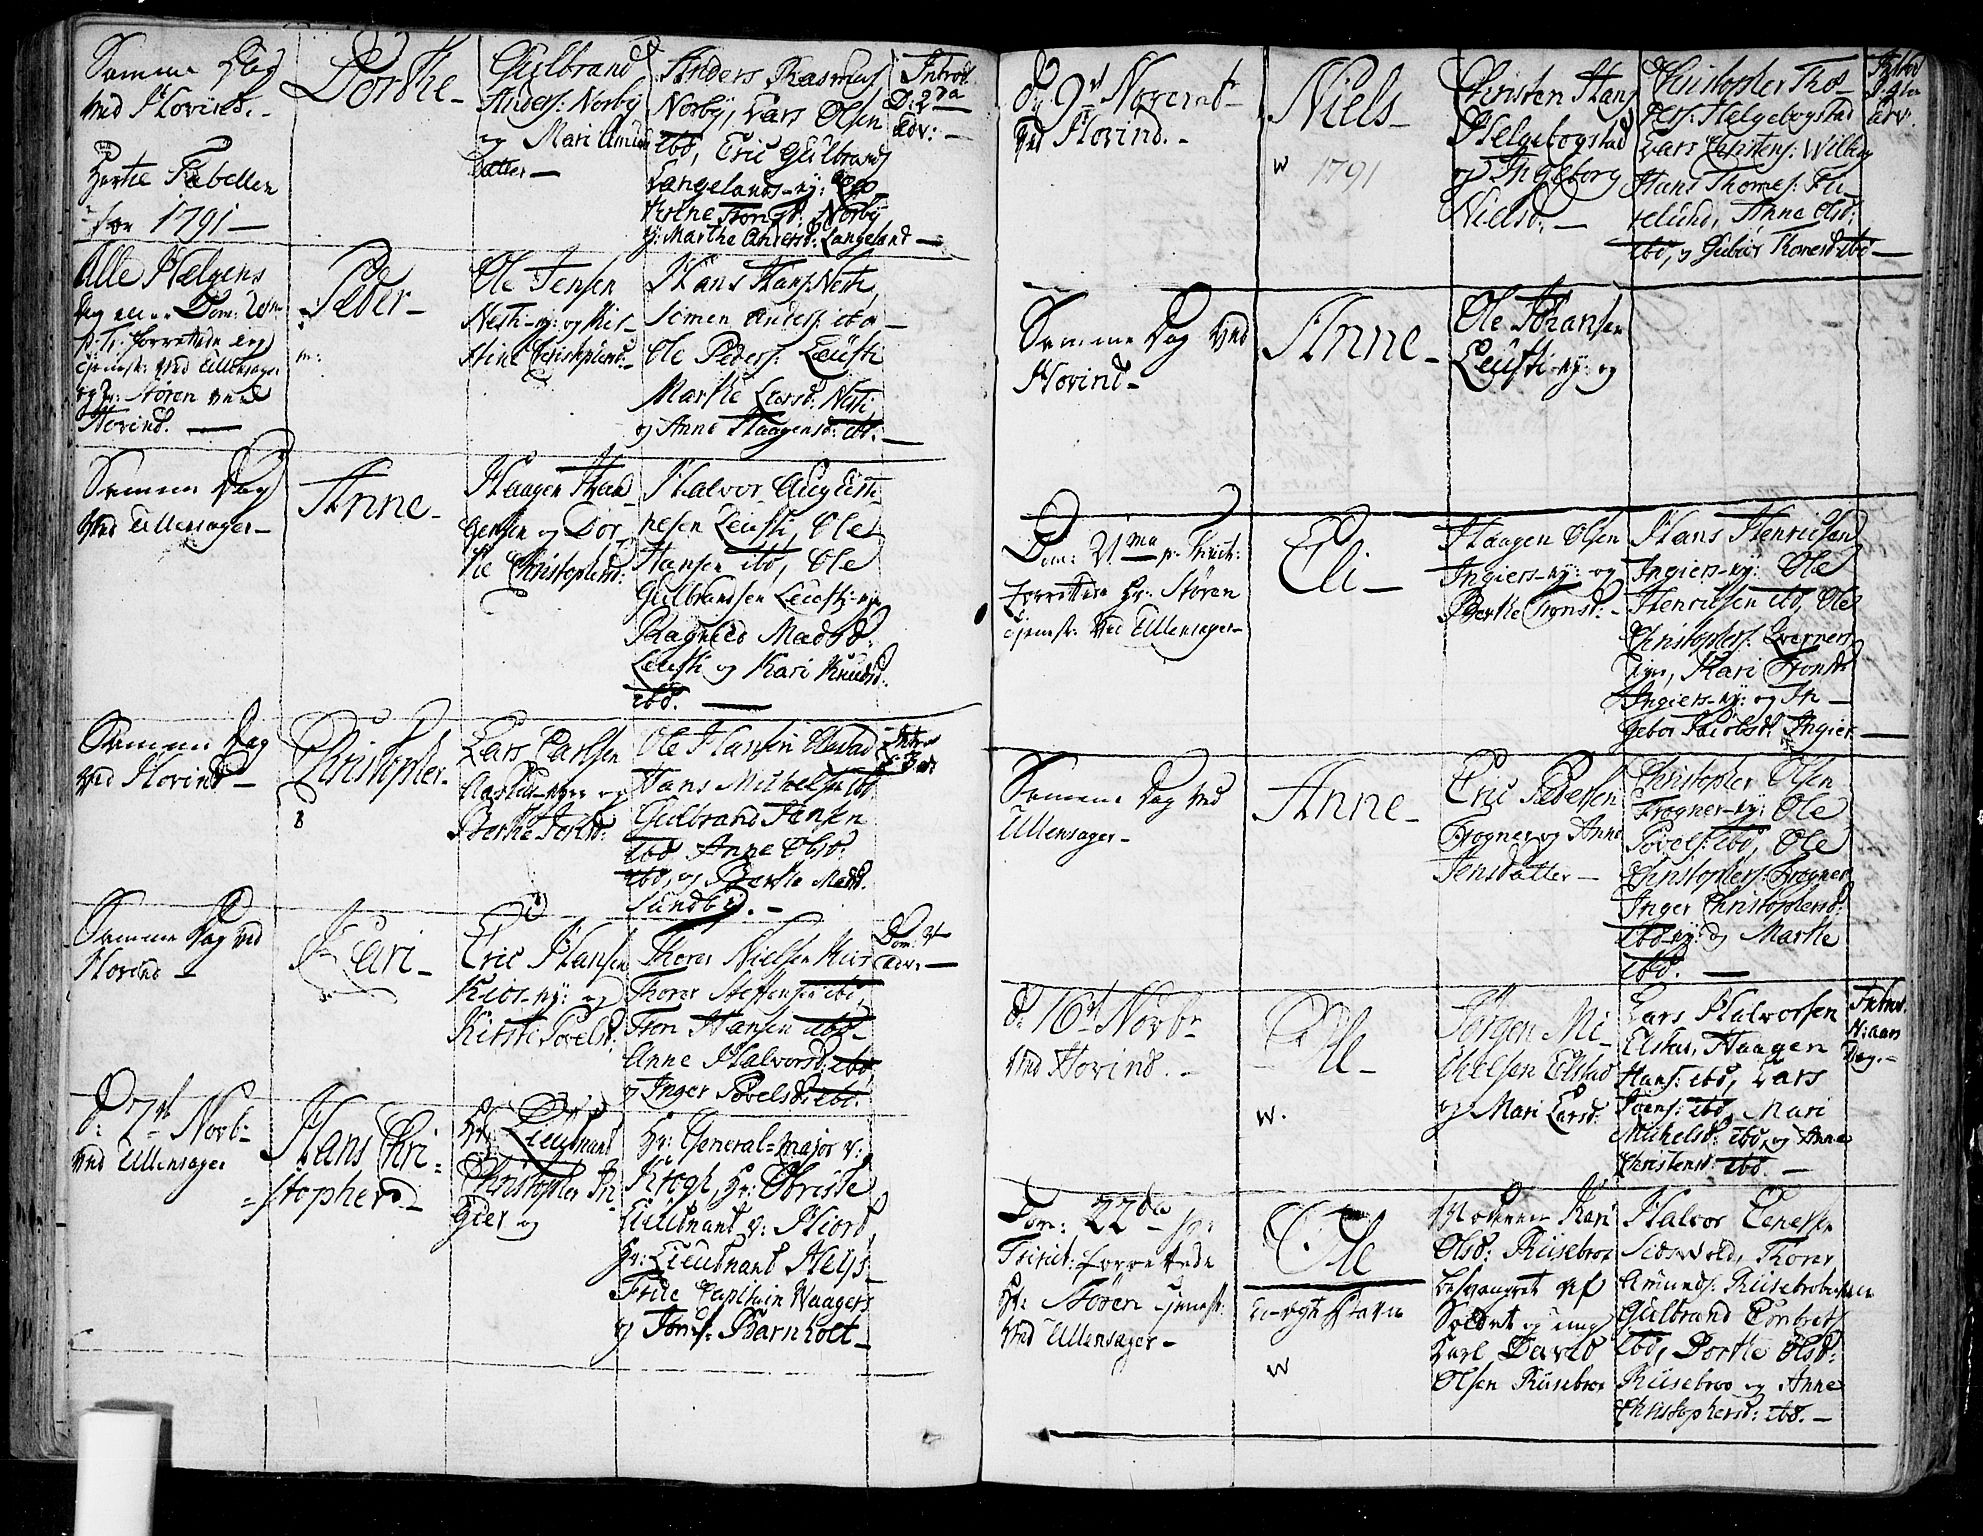 Samme Dag
ved Hovind. -
Herte Tabellen
for 1791 -
Dorthe -
Gulbrand
Anders: Norby
og Mari Amund
datter -
Anders Rasmus
Norby, Lars Olsen
ibd, Eric Gulbrands
Langelands-ey:
Norby
ey: Marthe Andersd: Langeland -
Introd.
D: 2da
Adv: -
Alle Helgens
Dag eller Dom: 20me
p. Tr: forrettede ieg
Tjenest: ved Ullensager
og Hr: Støren ved
Hovind. -
Peder -
Ole Jensen
Nesti-ey: og Kir-
stine Christophersd: -
Hans Hans: Nesti,
Simen Anders: ibd -
Ole Peders: Leusti
Marthe Larsd: Nesti
og Anne Haagensd: ibd: -
Samme Dag
ved Ullensager -
Anne -
Haagen Haa
gensen og Dor
the Christophersd:
Halvor Augusti-
nesen Leusti, Ole
Hansen ibd, Ole
Gulbrandsen Leusti-ey
Ragnild Madsd:
Leusti og Kari Knudsd:
ibd. -
Samme Dag
ved Hovind -
Christopher -
8
Lars Carlsen
og
Berthe
Ole Hansen
Hans Michelsen ibd
Gulbrand Hansen
ibd Anne Olsd:
ibd, og Berthe Madsd.
Sundby. -
Introd
Samme Dag ved
Hovind -
Kari -
Eric Hansen
Kios-ey: og
Kirsti Povelsd:
Thorer Nielsen Kios
Thorer Steffensen ibd,
Tron Hansen ibd -
Anne Halvorsd: ibd
og Inger Povelsd: ibd. -
Dom: 2
Adv: -
d: 7de Novb: -
ved Ullensager
Hans Chri-
stopher -
Hr: Lieutnant
Christopher In-
gier og
Hr: General-major v:
Krogh, Hr: Obriste
Lieutnant v: Hiort,
Hr: Lieutnant Heys -
Frue Capitain Waagers
og Jomf: Barnholt -
d: 9de Novembr
ved Hovind. -
Niels -
w 1791
Christen Hans
Helgebogstad
og Ingeborg
Nielsd: -
Christopher Tho-
Helgebogstad
Lars Christens: Wilberg
Hans Thomes:
Anne Olsd:
ibd, og Thoresd ibd -
Introd
Adv:
Samme Dag ved
Hovind -
Anne -
Ole Johansen
Leusti-ey: og
Dom: 21ma p. Trinit:
forrettede Hr: Støren
Tjenest: ved Ullensager -
Eli -
Haagen Olsen
Ingiers-ey: og
Berthe Tronsd: -
Hans Henricsen
Ingiers-ey: Ole
Henricsen ibd, Ole
Christophers:
Kari Tronsd:
Ingiers-ey: og In-
gebor Jacobsd: Ingier -
Samme Dag ved
Ullensager -
Anne -
Eric Pedersen
Frogner og Anne
Jensdatter -
Christopher Olsen
Frogner-ey: Ole
Povels: ibd, Ole
Christophers: Frogner
Inger Christophersd:
ibd-ey: og Marthe
ibd. -
d: 16de Novbr
ved Hovind. -
Ole -
w.
Jørgen Mi-
chelsen Elstad
og Mari Larsd:
Lars Halvorsen
Elstad, Haagen
Hans: ibd, Lars
ibd, Mari
Michelsd: ibd, og Anne
Christensd: ibd. -
Introd.
N: aars
Dag. -
Dom: 22da p:
Trinit: forrettede
Hr: Støren Tjenest:
ved Ullensager -
Ole
w
Moderen Kari
Olsd: Riisebroe
besvangret af
Soldat og ung
Karl David
Olsen Riisebroe
Halvor
Thorer
Amunds: Riisebro
Gulbrand Embrets
ibd, Dorthe Olsd:
Riisebroe og Anne
Christophersd: ibd. -